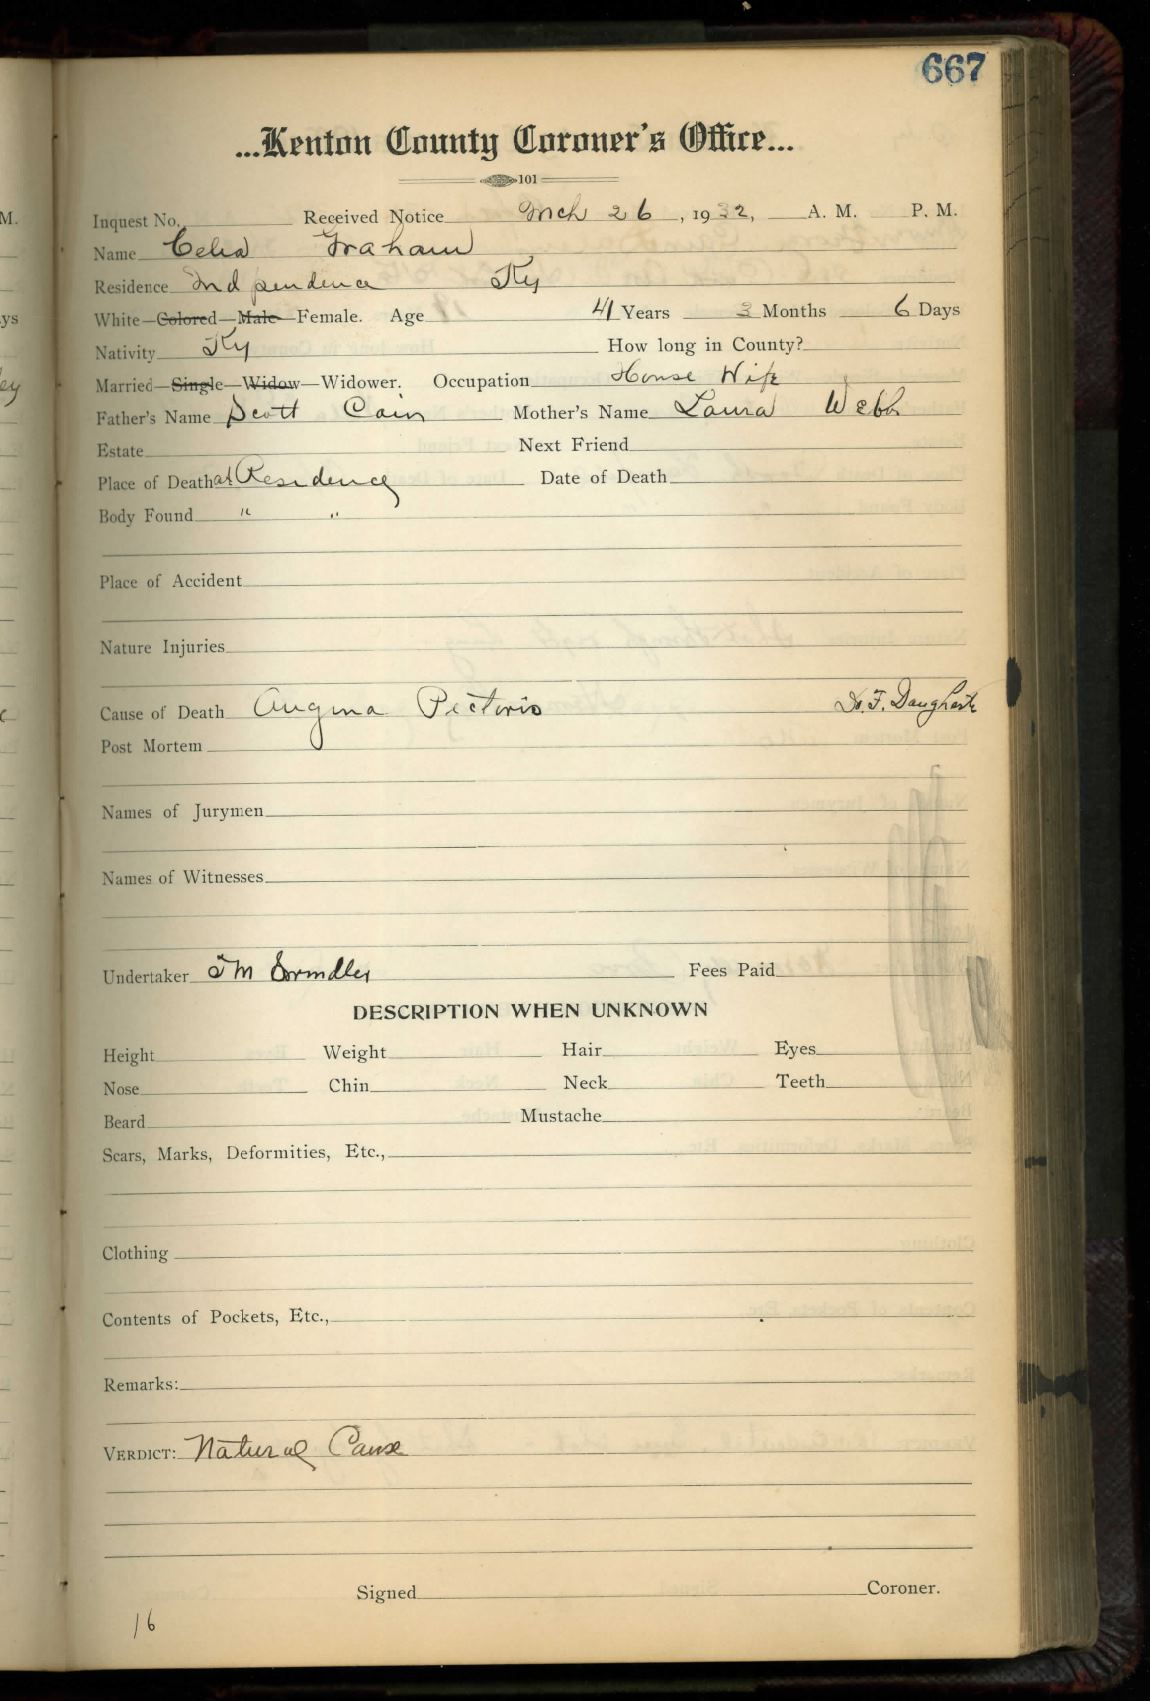 667
...Kenton County Coroner's Office...
101
Inquest No. Received Notice Mch 26, 1932, A. M. P. M.
Name Celia Graham
Residence Independence Ky
White—Colored—Male—Female. Age 41 Years 3 Months 6 Days
Nativity Ky How long in County?
Married—Single—Widow—Widower. Occupation House Wife
Father's Name Scott Cain Mother's Name Laura Webb
Estate Next Friend
Place of Death at Residence Date of Death
Body Found " "
Place of Accident
Nature Injuries
Cause of Death Angina Pectoris Dr. F. Daugherty
Post Mortem
Names of Jurymen
Names of Witnesses
Undertaker Fees Paid
DESCRIPTION WHEN UNKNOWN
Height Weight Hair Eyes
Nose Chin Neck Teeth
Beard Mustache
Scars, Marks, Deformities, Etc.,
Clothing
Contents of Pockets, Etc.,
Remarks:
VERDICT: Natural Cause
Signed Coroner.
16